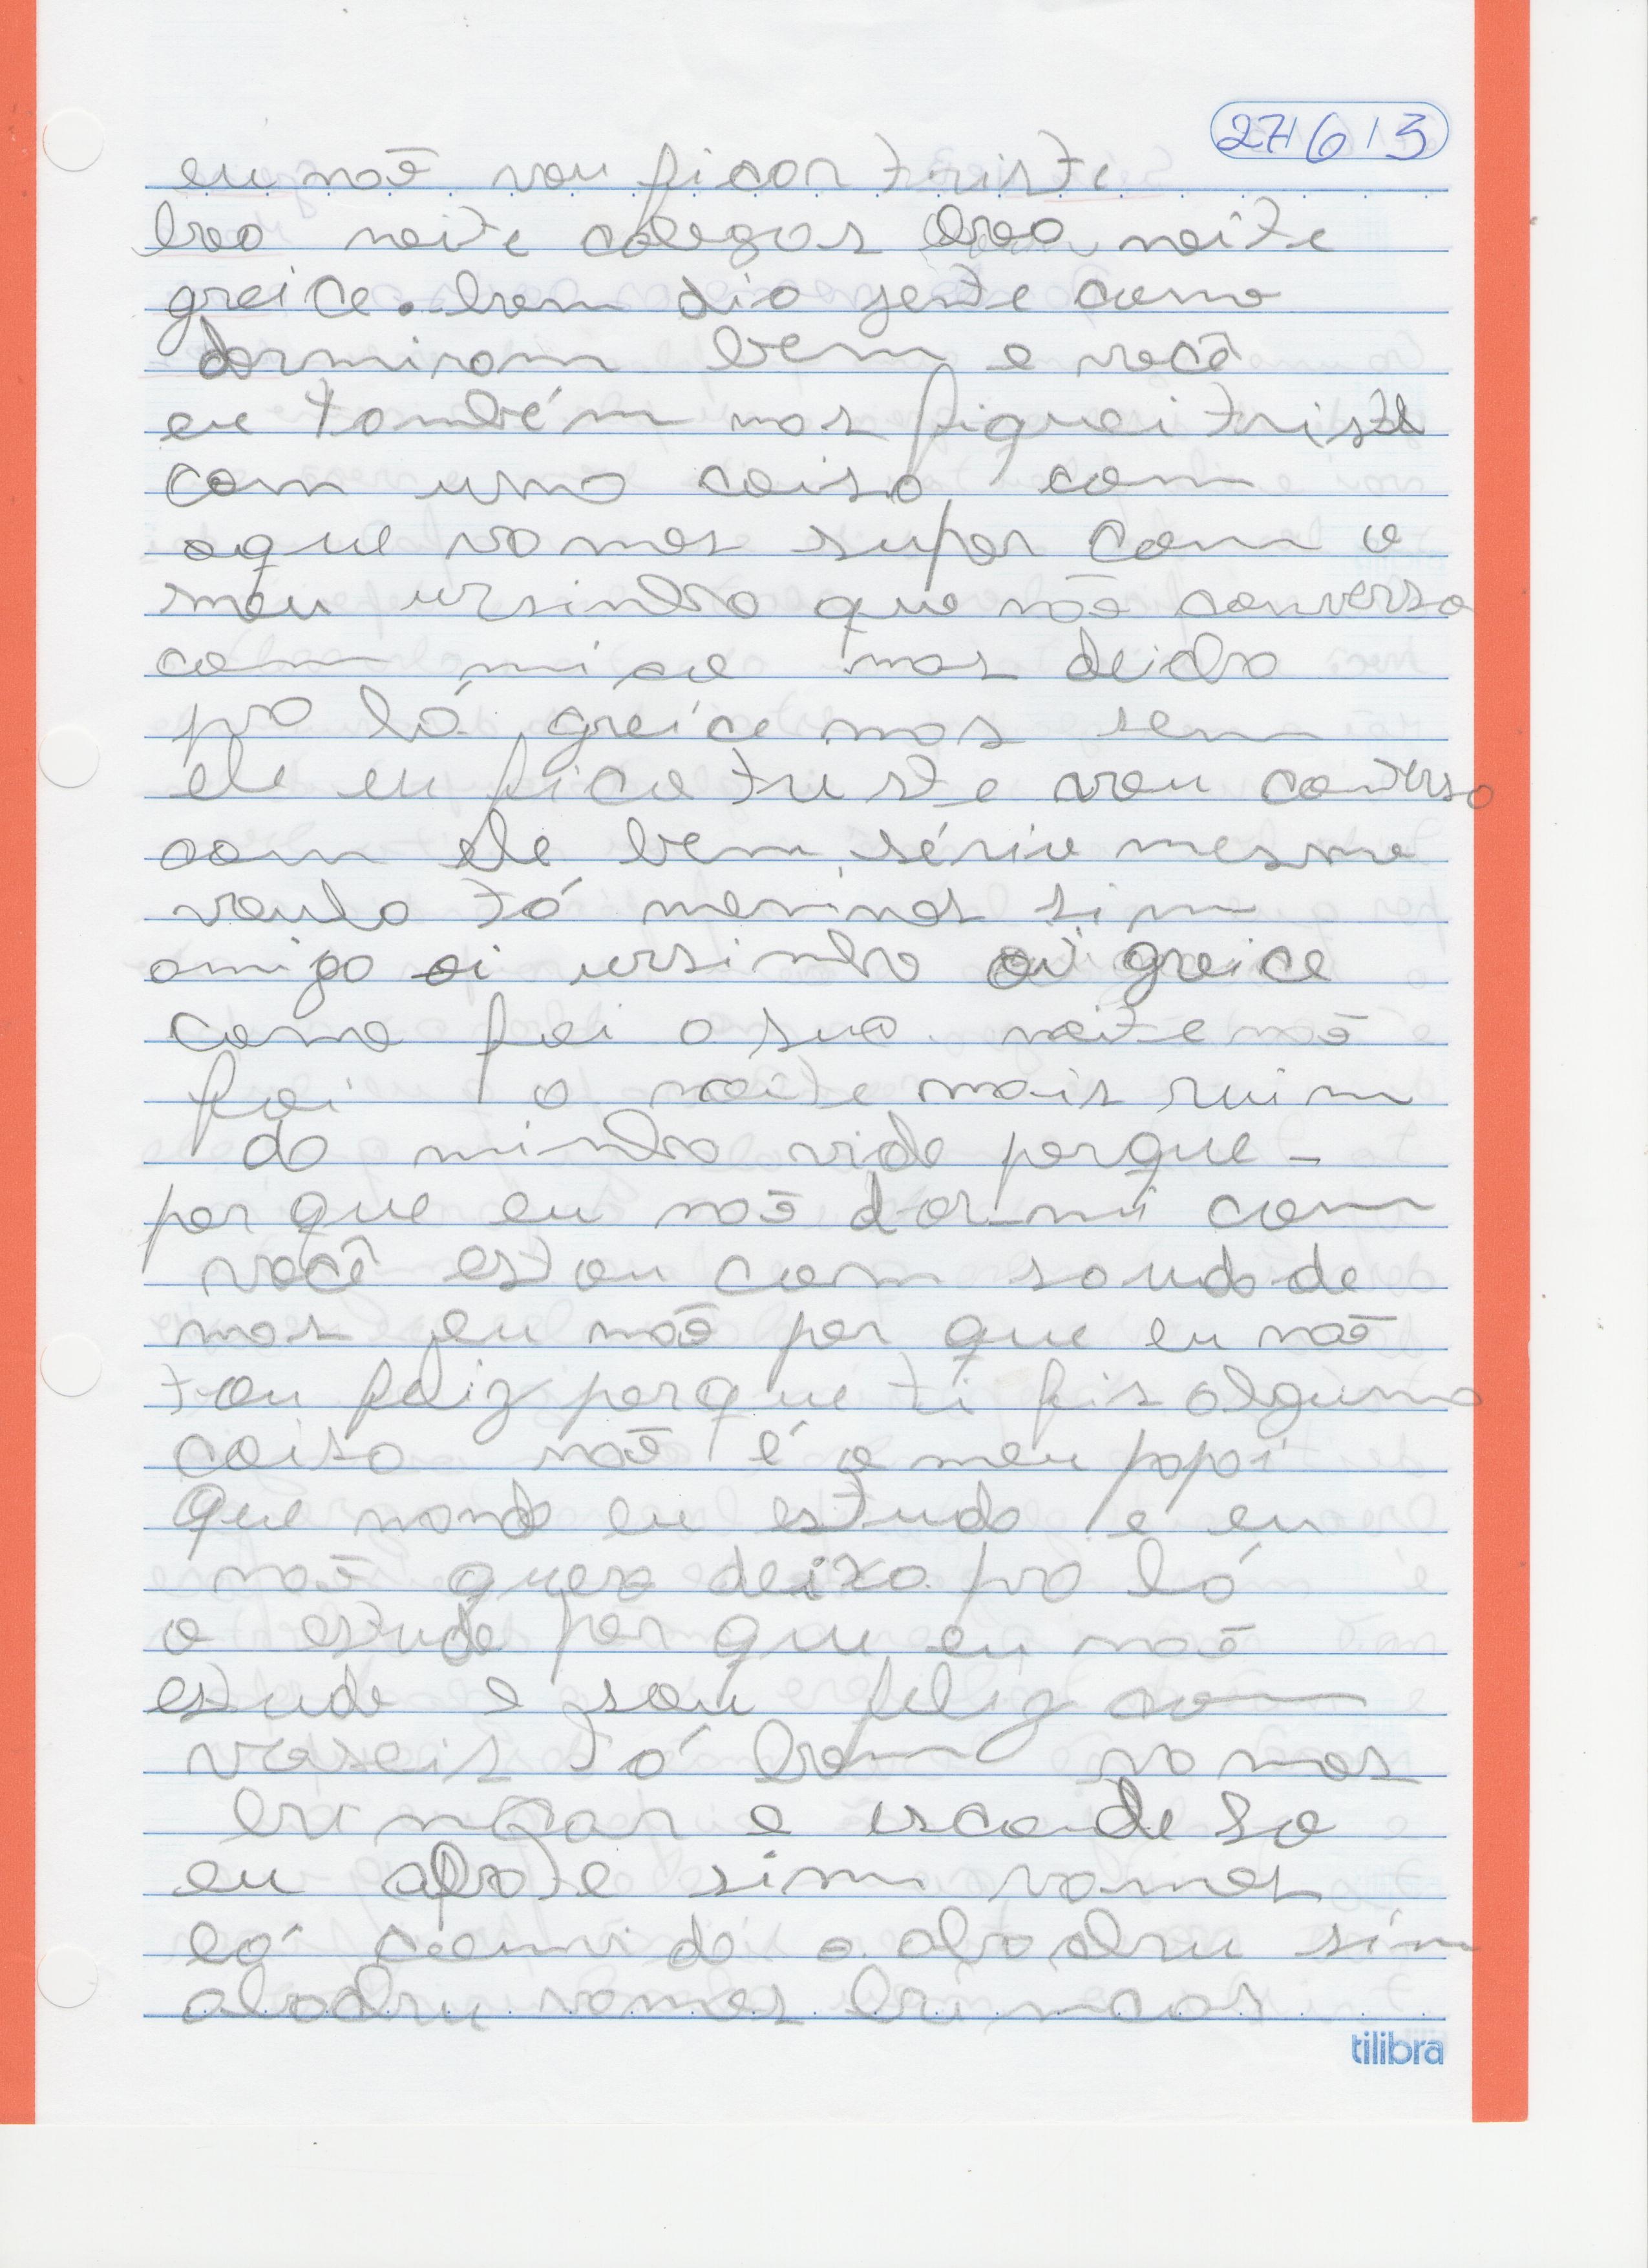 27/6/13
eu não vou ficar triste
boa noite colegas boa noite
greice. bom dia gente como
dormiram bem e você
eu também mas fiquei triste
com uma coisa com
oque vamos supor com o
meu ursinho que não conversa
com migo mas deicha
pra lá greice mas sem
ele eu fico triste vou conversa
com ele bem sério mesmo
voula tó meninas sim
amigo oi ursinho oi greice
como foi a sua noite não
foi a noite mais ruim
da minha vida porque -
por que eu não dormi com
você estou com saudade
mas eu não por que eu não
tou feliz porque ti fis alguma
coisa não é o meu papai
que manda eu estuda e eu
não quero deixa pra lá
o estudo por que eu não
estudo e sou feliz com
voseis tó bom vamos
brincar e escondeso
eu aposte sim vamos
lá convida o
vamos brincas
tilibra